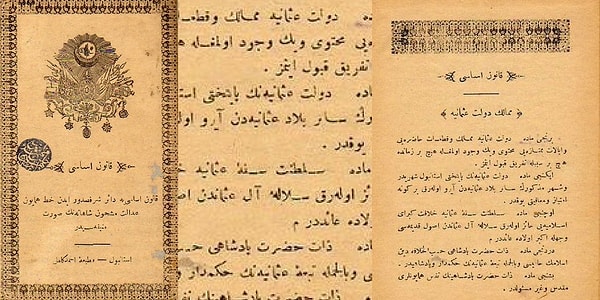 قانون اساسی
قانون اساسی‌یه دائر شرفصدور ایدن خط همایون
عدالت مشحون شاهانه‌نك صورت
منیفه‌سیدر
استانبول — مطبعهٔ احمد كامل
ماده . دولت عثمانیه ممالك وقطعا
یی محتوی ویك وجود اولمغله ه
تفریق قبول ایتمز .
ماده . دولت عثمانیه‌نك پایتختی
سائر بلاد عثمانیه‌دن آیرو او
یوقدر .
ماده . سلطنت سنیهٔ عثمانیه خ
ائز اوله‌رق سلالهٔ آل عثماندن اصو
عائددر م
ماده . ذات حضرت پادشاهی حس
وبالجمله تبعهٔ عثمانیه‌نك حكمدار و
ذات حضرت پادشاهینك نفس
قانون اساسی
ممالك دولت عثمانیه
برنجی ماده . دولت عثمانیه ممالك وقطعات حاضره‌یی
وایالات ممتازه‌یی محتوی ویك وجود اولمغله هیچ بر زمانده
هیچ بر سببله تفریق قبول ایتمز .
ایكنجی ماده . دولت عثمانیه‌نك پایتختی استانبول شهریدر
وشهر مذكورك سائر بلاد عثمانیه‌دن آیرو اوله‌رق بر كونه
امتیاز ومعافیتی یوقدر .
اوچنجی ماده . سلطنت سنیهٔ عثمانیه خلافت كبرای
اسلامیه‌یی حائز اوله‌رق سلالهٔ آل عثماندن اصول قدیمه‌سی
وجهله اكبر اولاده عائددر م
دردنجی ماده . ذات حضرت پادشاهی حسب الخلافه دین
اسلامك حامیسی وبالجمله تبعهٔ عثمانیه‌نك حكمدار وپادشاهیدر .
بشنجی ماده . ذات حضرت پادشاهینك نفس همایونلری
مقدس وغیر مسئولدر .